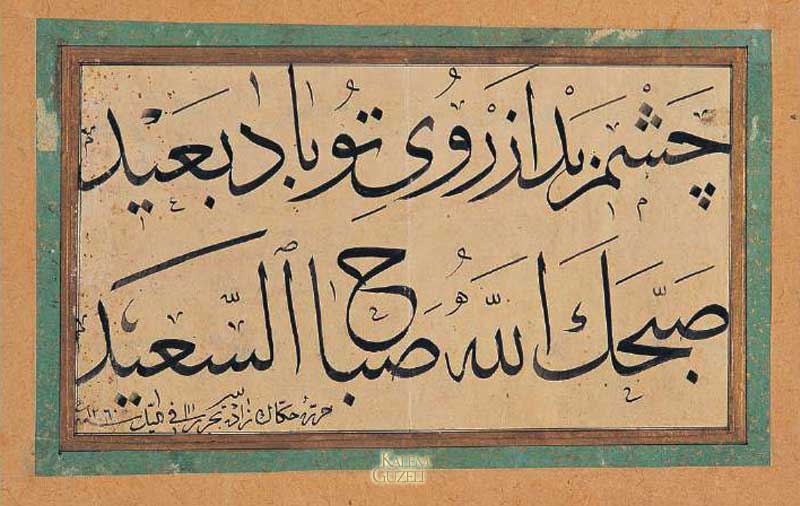 چَشْمِ بَدْ اَزْ رُوُىِ تُو بَادْ بَعَيْد
صَبَّحَكَ اللّٰهُ صَبَاحَ السَّعَيد
حرره حكاك زاده
KALEM GÜZELİ